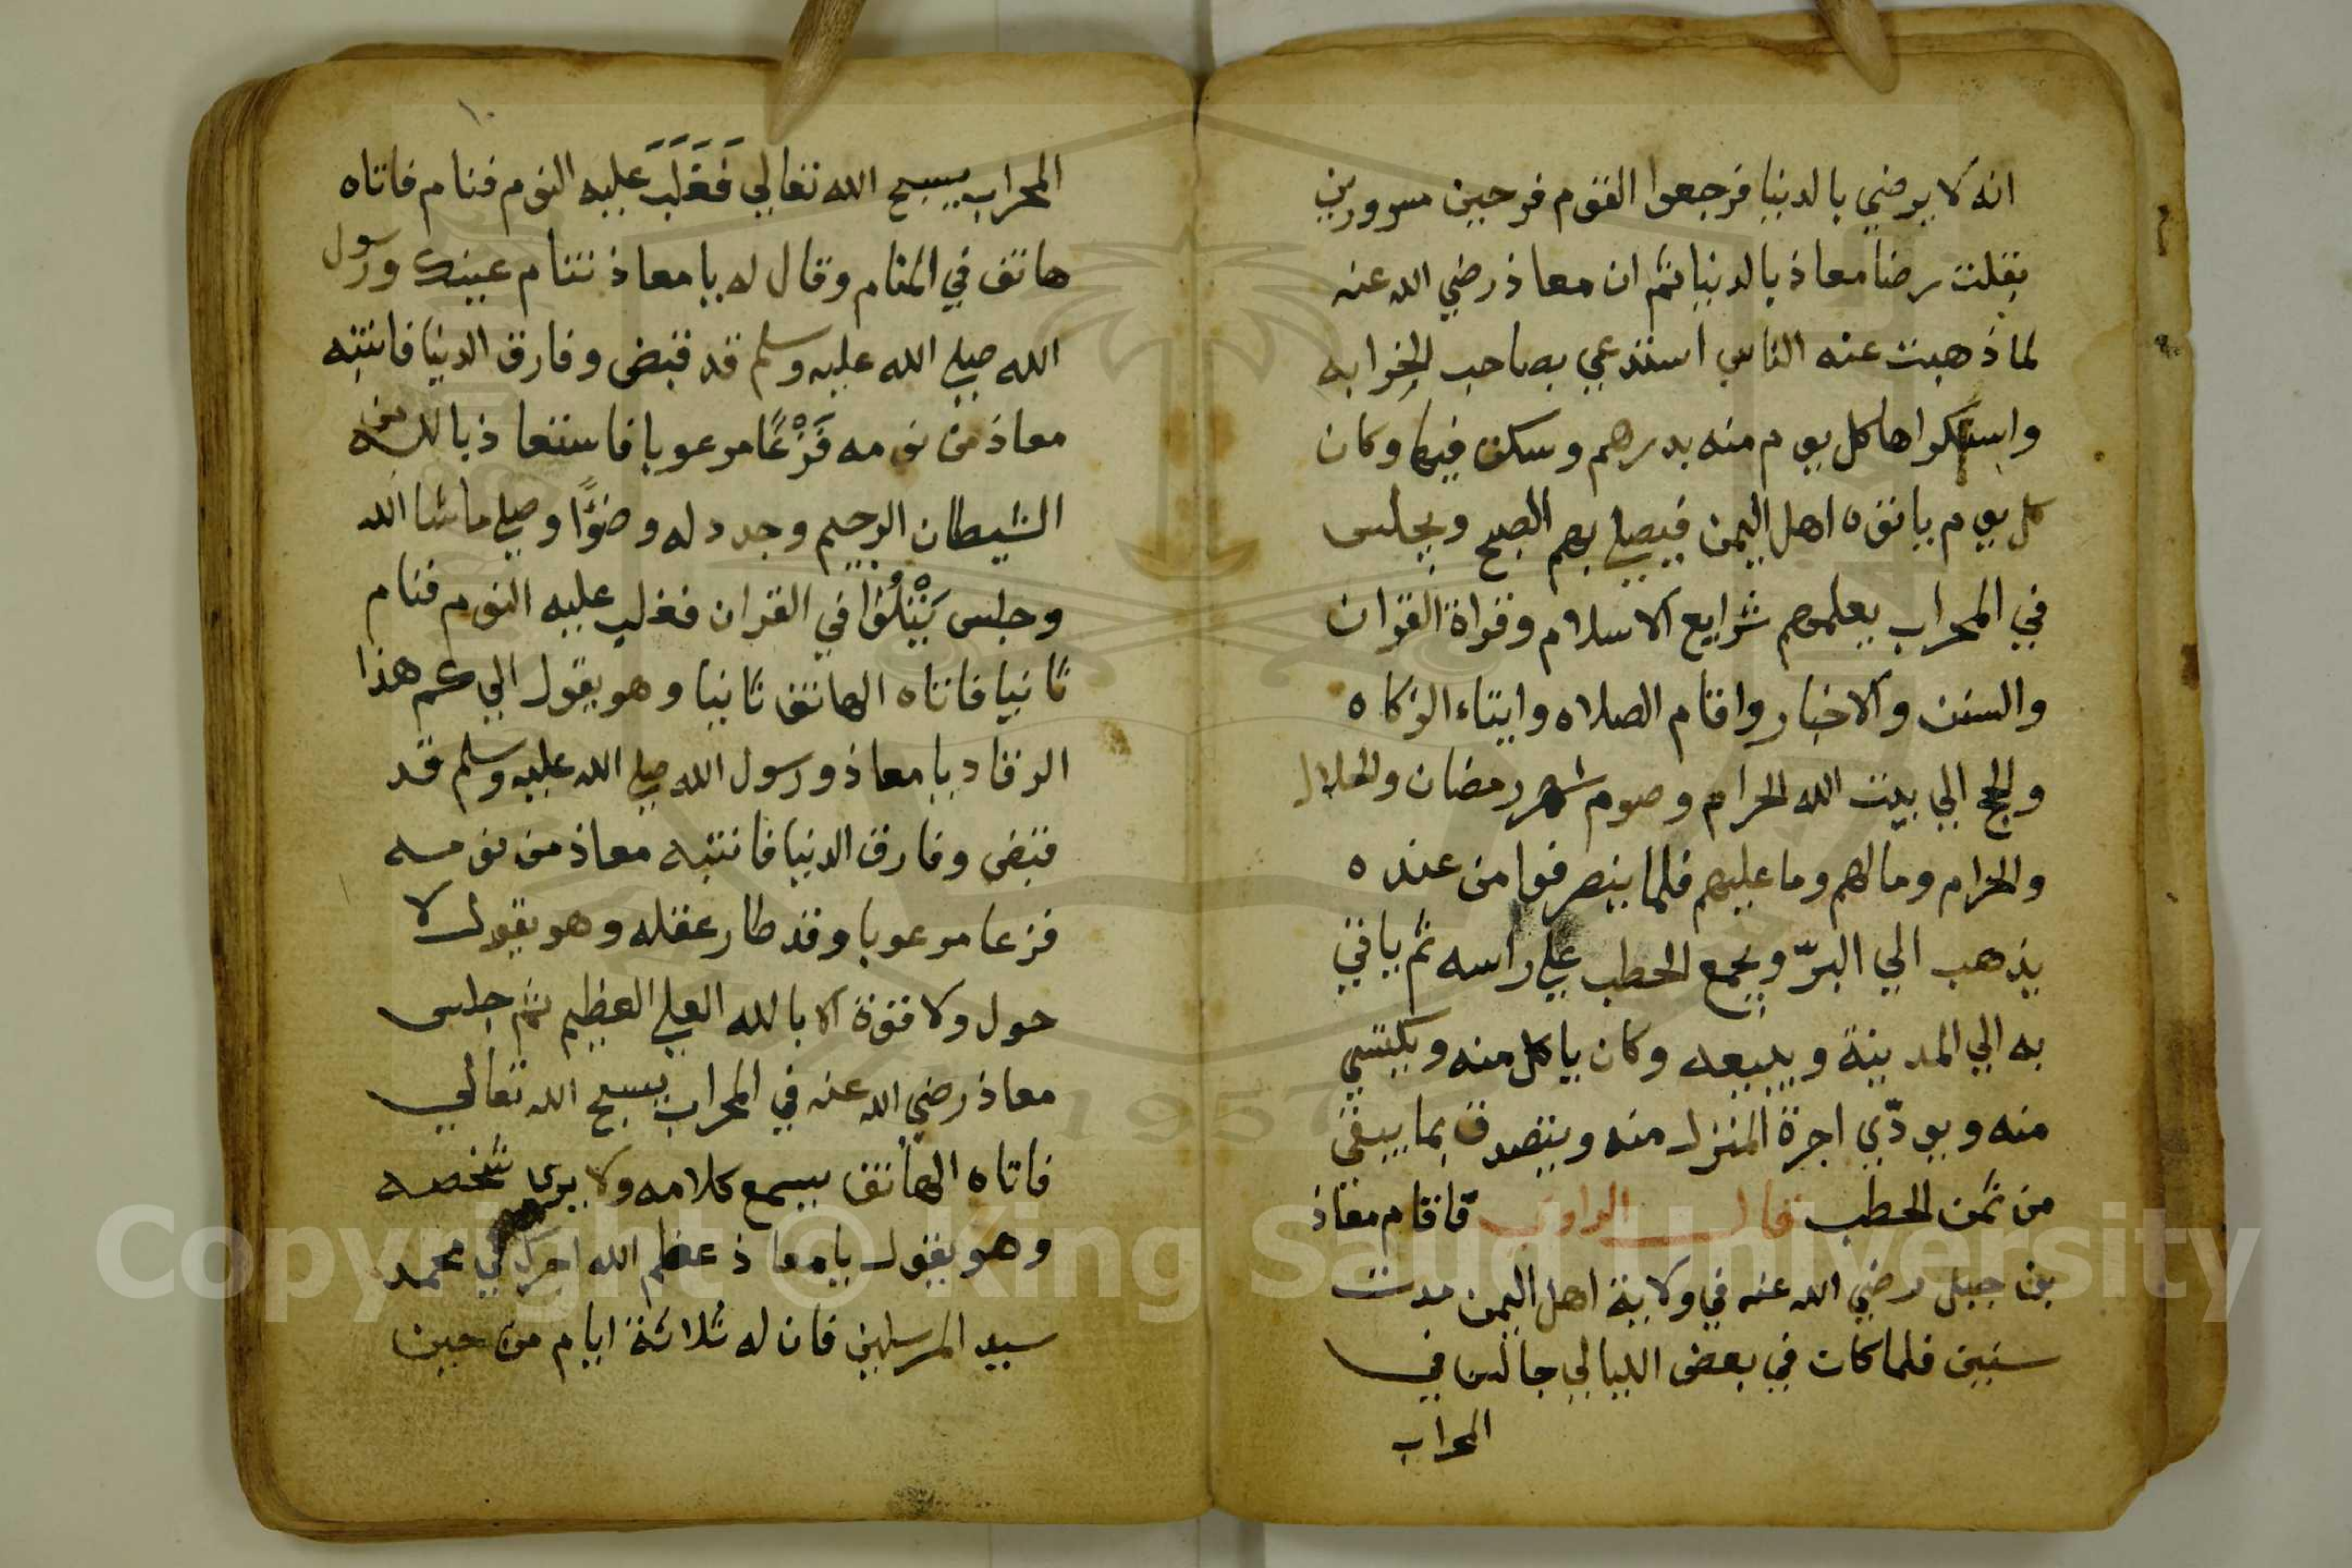 انه لا يرضي بالدنيا فرجعوا القوم فرحين مسرورين
بقلت رضا معاذ بالدنيا ثم ان معاذ رضي الله عنه
لما ذهبت عنه الناس استدعي بصاحب الخرابه
واستكراها كل يوم منه بدرهم وسكن فيها وكان
كل يوم ياتوه اهل اليمن فيصلي بهم الصبح ويجلس
في المحراب يعلمهم شرايع الاسلام وقراة القران
والسنن والاخبار واقام الصلاه وايتاء الزكاه
والحج الي بيت الله الحرام وصوم شهر رمضان والحلال
والحرام وما لهم وما عليهم فلما ينصرفوا من عنده
يذهب الي البرّ ويجمع الحطب علي راسه ثم ياتي
به الي المدينة ويبيعه وكان ياكل منه ويكتسي
منه ويودّي اجرة المنزل منه ويتصدق بما يبقي
من ثمن الحطب قال الراوي فاقام معاذ
بن جبل رضي الله عنه في ولاية اهل اليمن مدت
سنين فلما كان في بعض الليالي جالس في
المحراب
المحراب يسبح الله تعالي فَغَلَبَ عليه النوم فنام فاتاه
هاتف في المنام وقال له يا معاذ تنام عينك ورسول
الله صلي الله عليه وسلم قد قبض وفارق الدنيا فانتبه
معاذ من نومه فَزْعًا مرعوبا فاستعاذ بالله من
الشيطان الرجيم وجدد له وضوًا وصلي ما شا الله
وجلس يَتْلُوا في القران فغلب عليه النوم فنام
ثانيا فاتاه الهاتف ثانيا وهو يقول الي كم هذا
الرقاد يا معاذ ورسول الله صلي الله عليه وسلم قد
قبض وفارق الدنيا فانتبه معاذ من نومه
فزعا مرعوبا وقد طار عقله وهو يقول لا
حول ولا قوة الا بالله العلي العظيم ثم جلس
معاذ رضي الله عنه في المحراب يسبح الله تعالي
فاتاه الهاتف يسمع كلامه ولا يري شخصه
وهو يقول يا معاذ عظم الله اجرك في محمد
سيد المرسلين فان له ثلاثة ايام من حين
Copyright © King Saud University
1957